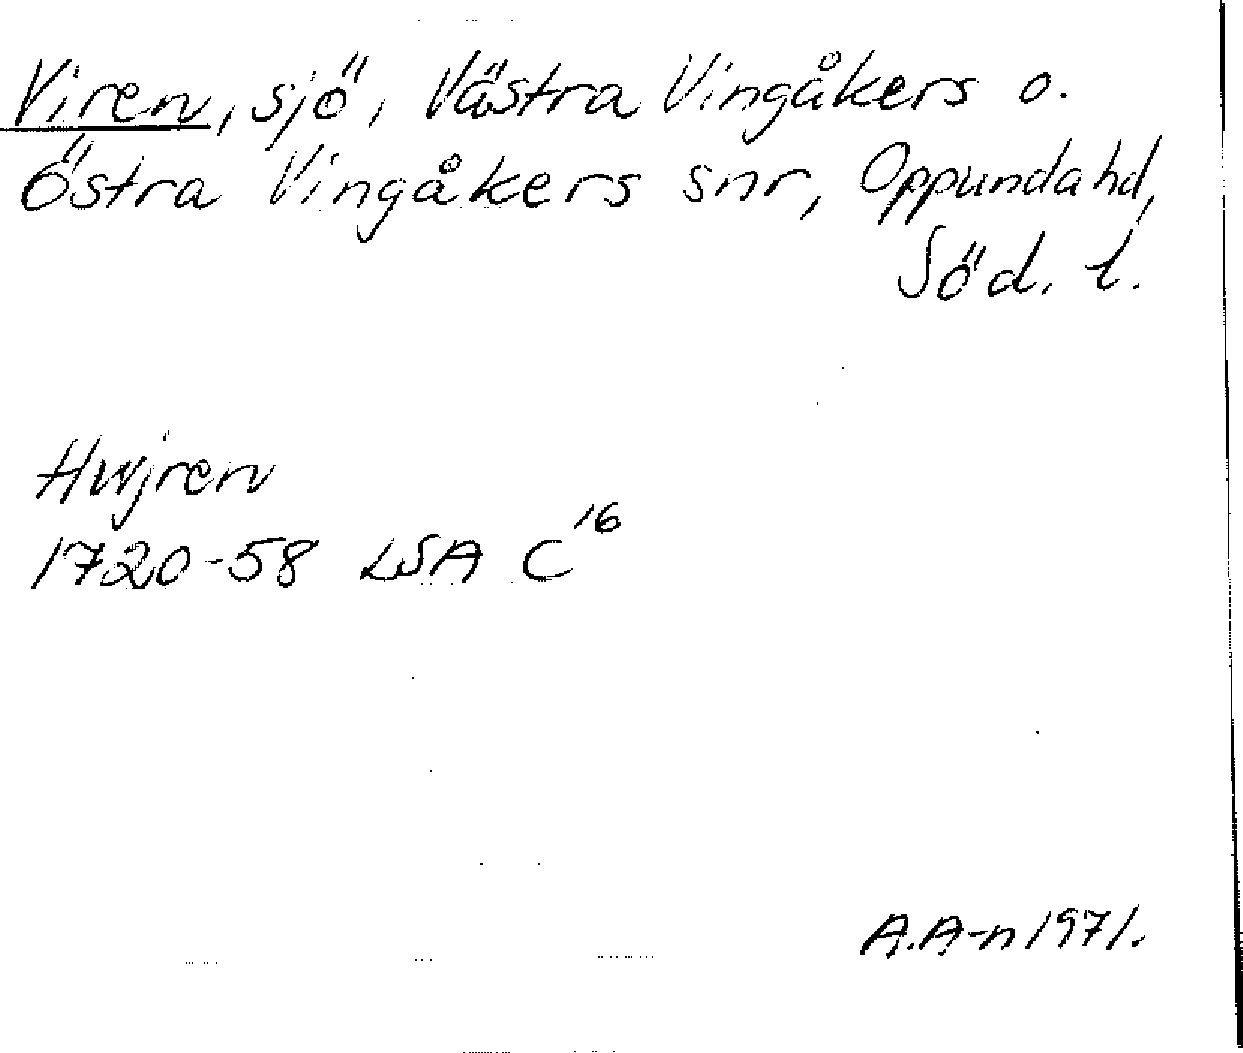 Viren, sjö, Västra Vingåkers o.
Östra Vingåkers snr, Oppunda hd,
Söd. l.
Hwjren
1720-58 LSA C16
A.A-n 1971.